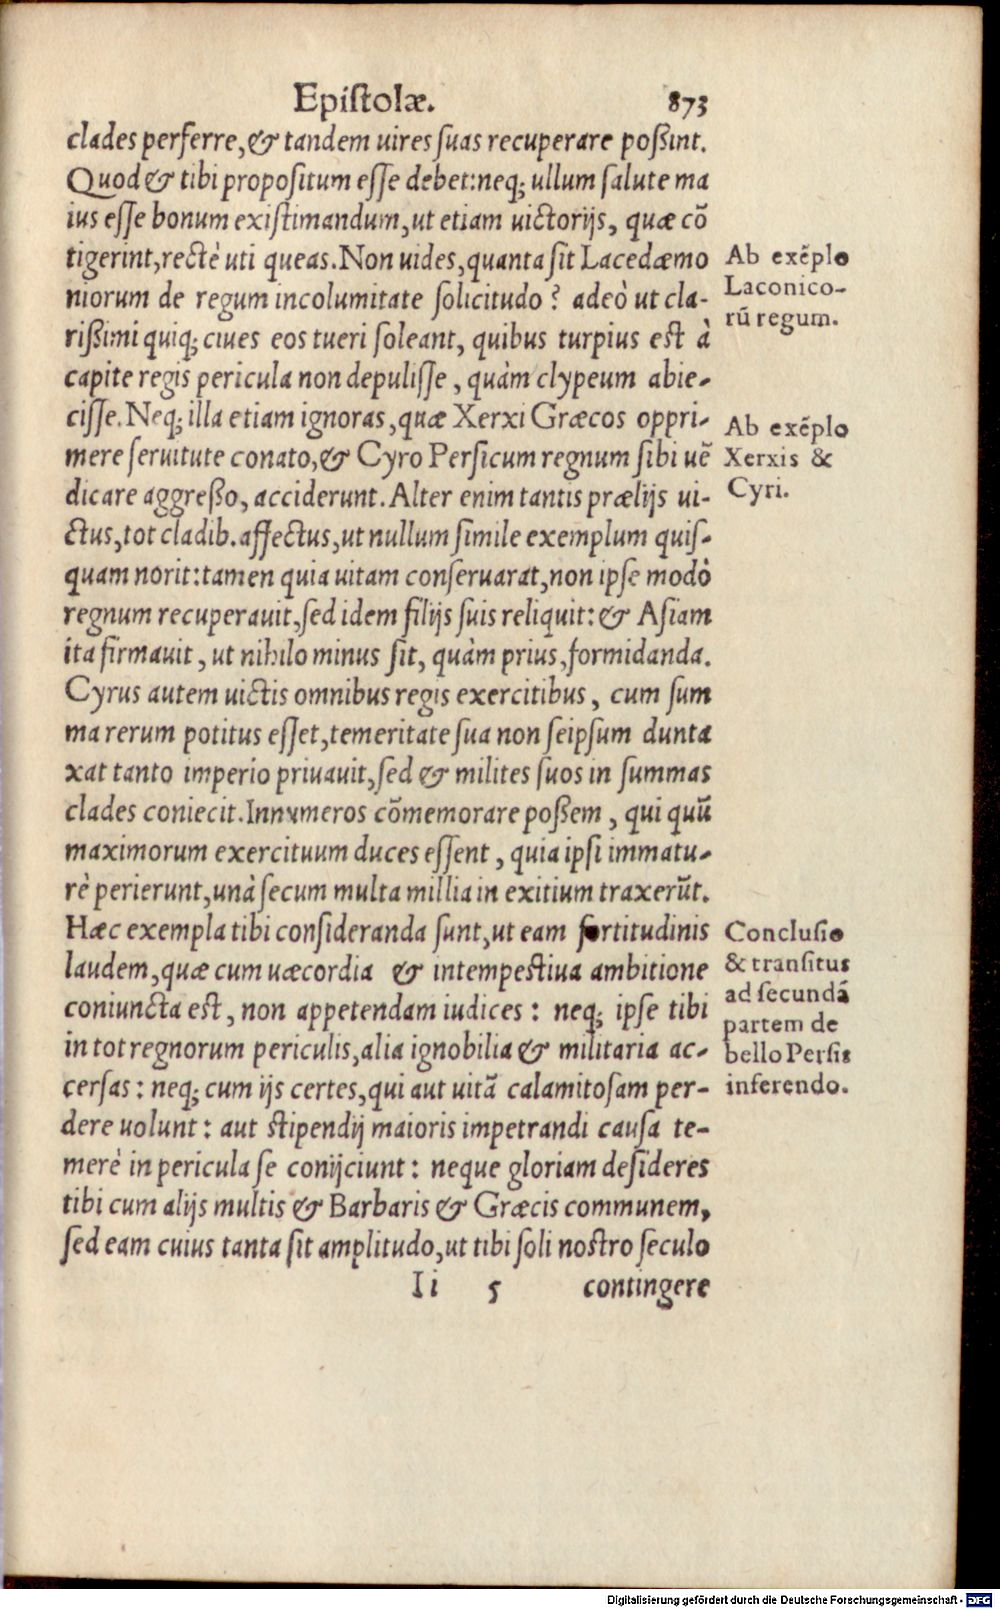 Epiſtolæ. 873
clades perferre, & tandem uires ſuas recuperare poßint.
Quod & tibi propoſitum eſſe debet: neq; ullum ſalute ma
ius eſſe bonum exiſtimandum, ut etiam uictorijs, quæ cõ
tigerint, rectè uti queas. Non uides, quanta ſit Lacedæmo
niorum de regum incolumitate ſolicitudo? adeò ut cla-
rißimi quiq; ciues eos tueri ſoleant, quibus turpius est à
capite regis pericula non depuliſſe, quàm clypeum abie-
ciſſe. Neq; illa etiam ignoras, quæ Xerxi Græcos oppri-
mere ſeruitute conato, & Cyro Perſicum regnum ſibi uẽ
dicare aggreßo, acciderunt. Alter enim tantis prælijs ui-
ctus, tot cladib. affectus, ut nullum ſimile exemplum quiſ-
quam norit: tamen quia uitam conſeruarat, non ipſe modò
regnum recuperauit, ſed idem filijs ſuis reliquit: & Aſiam
ita firmauit, ut nihilo minus ſit, quàm prius, formidanda.
Cyrus autem uictis omnibus regis exercitibus, cum ſum
ma rerum potitus eſſet, temeritate ſua non ſeipſum dunta
xat tanto imperio priuauit, ſed & milites ſuos in ſummas
clades coniecit. Innumeros cõmemorare poßem, qui quũ
maximorum exercituum duces eſſent, quia ipſi immatu-
rè perierunt, unà ſecum multa millia in exitium traxerũt.
Hæc exempla tibi conſideranda ſunt, ut eam fortitudinis
laudem, quæ cum uæcordia & intempeſtiua ambitione
coniuncta est, non appetendam iudices: neq; ipſe tibi
in tot regnorum periculis, alia ignobilia & militaria ac-
cerſas: neq; cum ijs certes, qui aut uitã calamitoſam per-
dere uolunt: aut ſtipendij maioris impetrandi cauſa te-
merè in pericula ſe conijciunt: neque gloriam deſideres
tibi cum alijs multis & Barbaris & Græcis communem,
ſed eam cuius tanta ſit amplitudo, ut tibi ſoli noſtro ſeculo
Ii 5 contingere
Ab exẽplo
Laconico-
rũ regum.
Ab exẽplo
Xerxis &
Cyri.
Concluſio
& tranſitus
ad ſecundã
partem de
bello Perſis
inferendo.
Digitalisierung gefördert durch die Deutsche Forschungsgemeinschaft - DFG